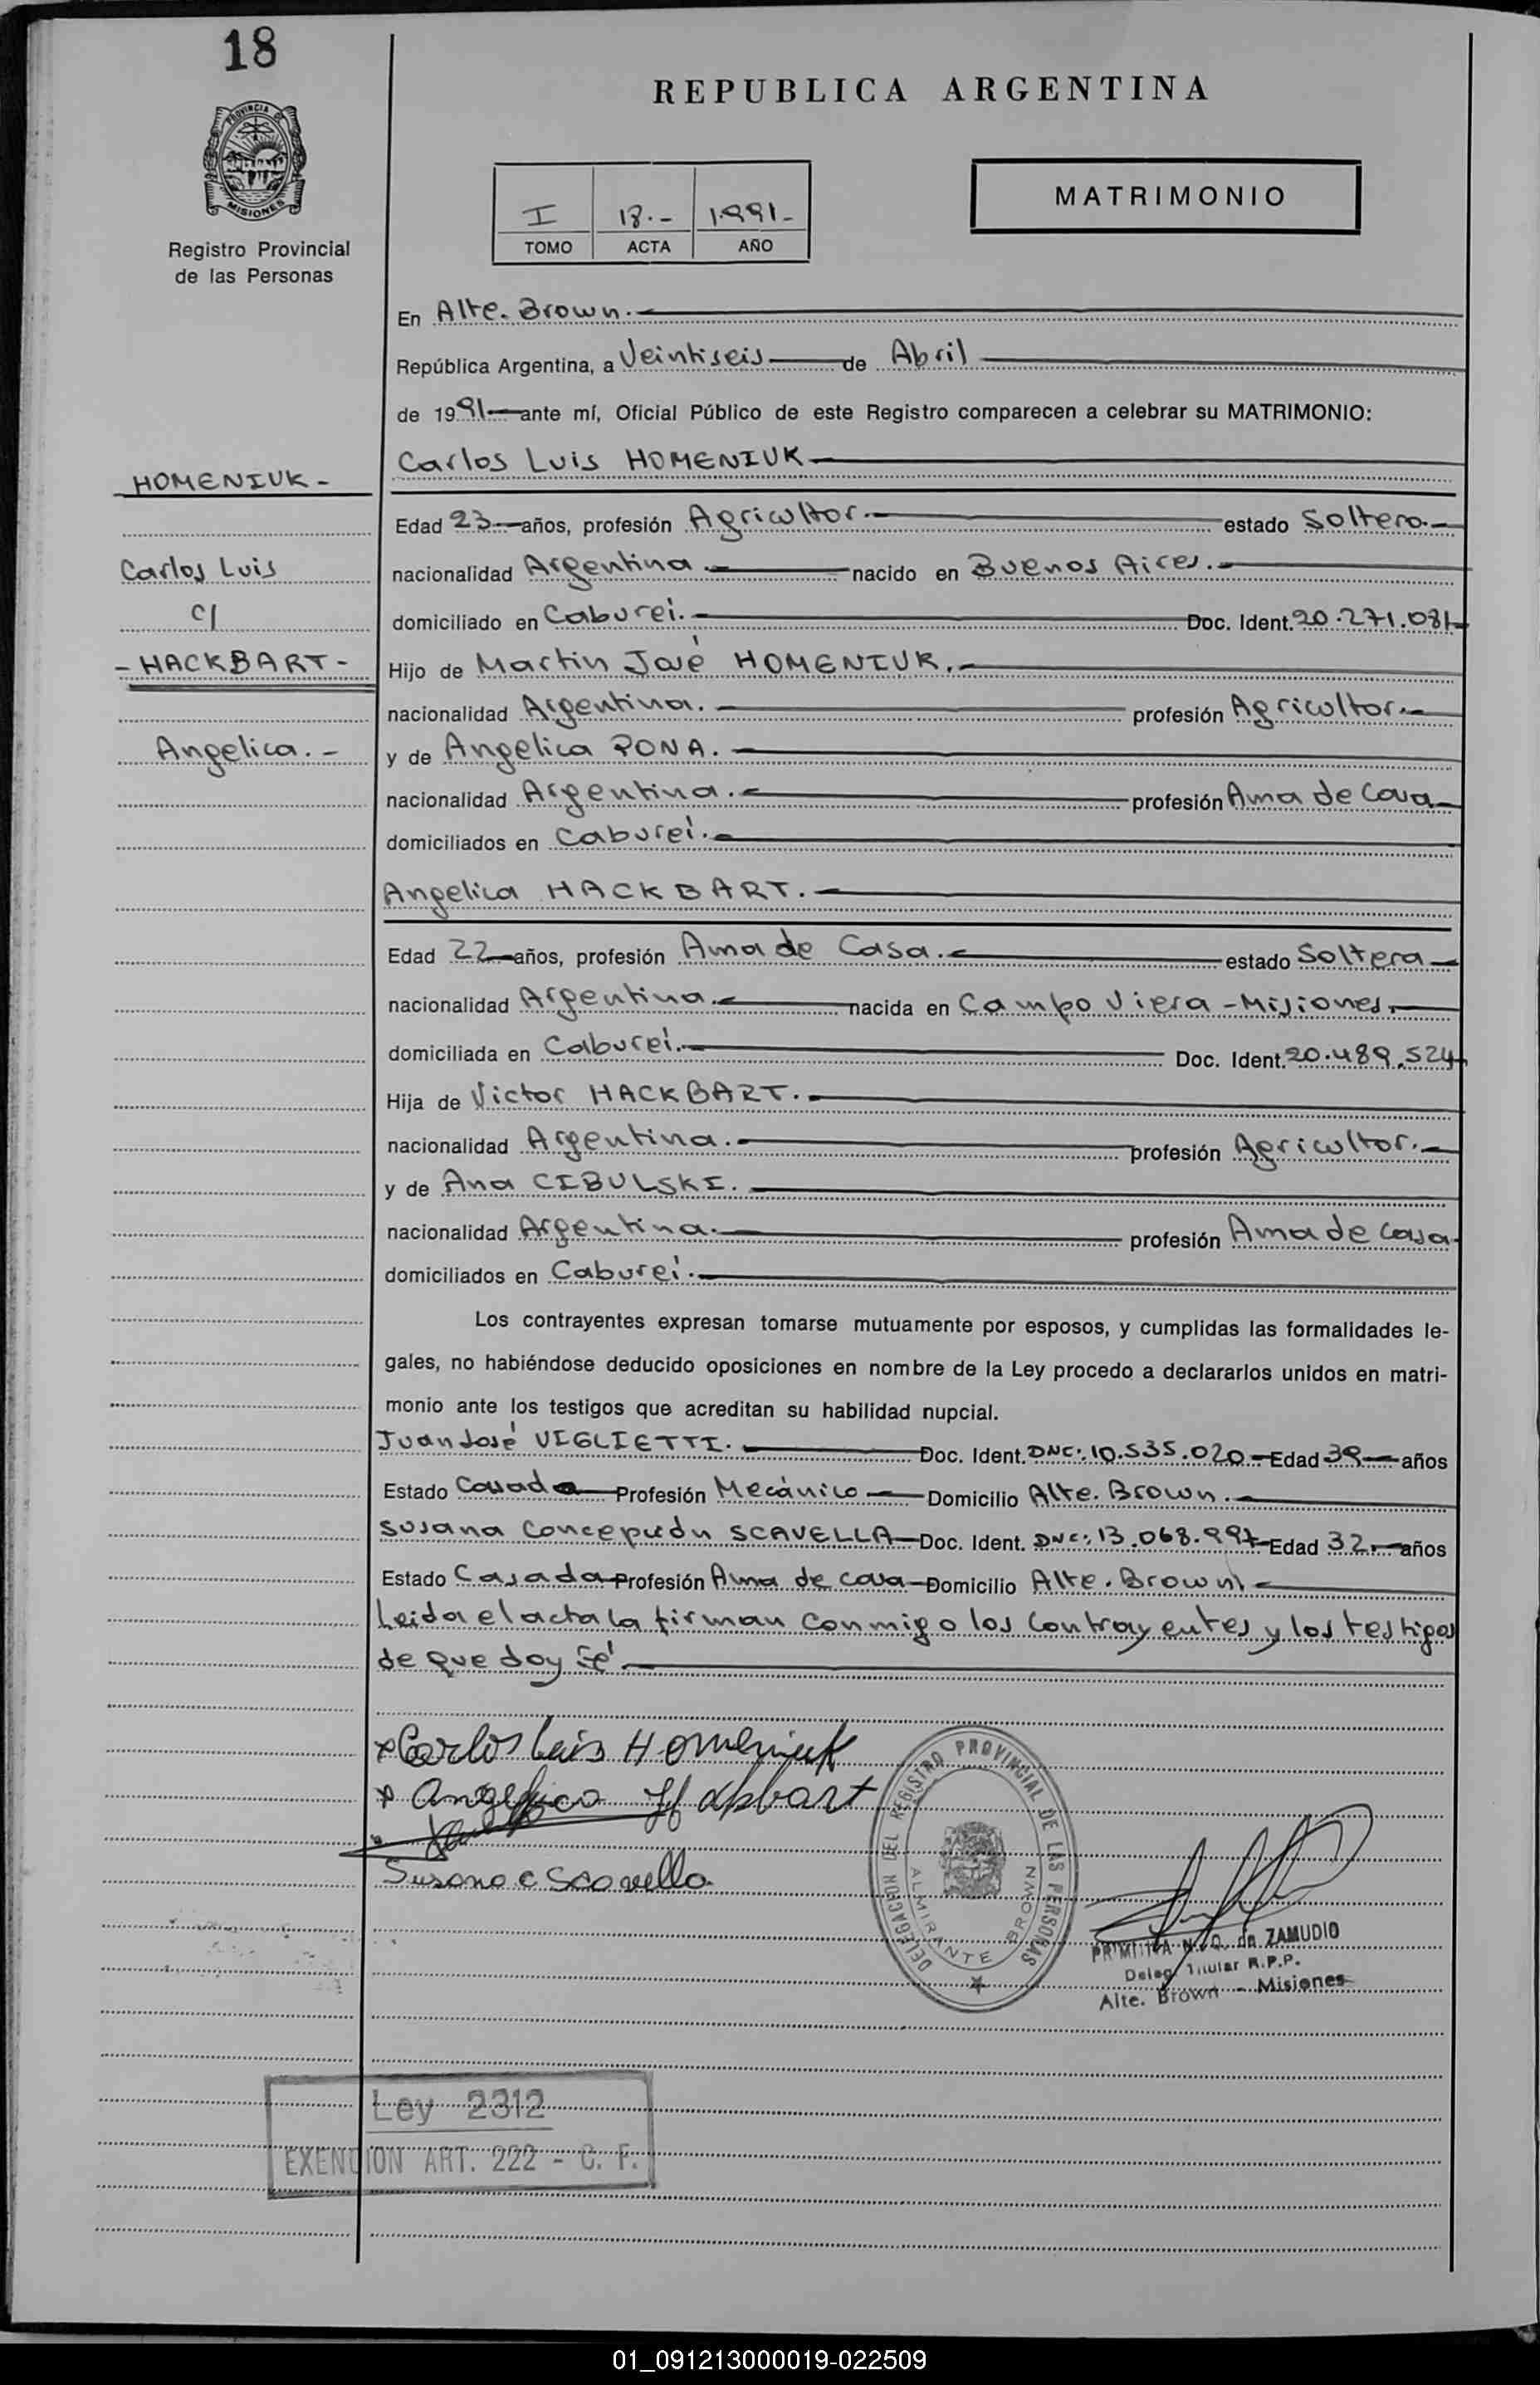 18
REPUBLICA ARGENTINA
PROVINCIA DE
MISIONES
Registro Provincial
de las Personas
I 18.- 1.991-
TOMO ACTA AÑO
MATRIMONIO
En Alte. Brown.
República Argentina, a Veintiseis de Abril
de 1991 ante mí, Oficial Público de este Registro comparecen a celebrar su MATRIMONIO:
HOMENIUK -
Carlos Luis
c/
- HACKBART -
Angelica. -
Carlos Luis HOMENIUK
Edad 23 años, profesión Agricultor. estado Soltero.-
nacionalidad Argentina. nacido en Buenos Aires.
domiciliado en Caburei. Doc. Ident. 20.271.081
Hijo de Martin José HOMENIUK.
nacionalidad Argentina. profesión Agricultor.-
y de Angelica PONA.
nacionalidad Argentina. profesión Ama de Casa
domiciliados en Caburei.
Angelica HACKBART.
Edad 22 años, profesión Ama de Casa. estado Soltera
nacionalidad Argentina. nacida en Campo Viera - Misiones.
domiciliada en Caburei. Doc. Ident. 20.489.524
Hija de Victor HACKBART.
nacionalidad Argentina. profesión Agricultor.
y de Ana CIBULSKI.
nacionalidad Argentina. profesión Ama de Casa
domiciliados en Caburei.
Los contrayentes expresan tomarse mutuamente por esposos, y cumplidas las formalidades le-
gales, no habiéndose deducido oposiciones en nombre de la Ley procedo a declararlos unidos en matri-
monio ante los testigos que acreditan su habilidad nupcial.
Juan José VIGLIETTI. Doc. Ident. DNC: 10.535.020 Edad 39 años
Estado Casado Profesión Mecánico Domicilio Alte. Brown.
Susana Concepción SCAVELLA Doc. Ident. DNC: 13.068.997 Edad 32 años
Estado Casada Profesión Ama de casa Domicilio Alte. Brown
Leida el acta la firman conmigo los contrayentes y los testigos
de que doy Fé
Carlos Luis Homeniuk
Angelica Hakbart
Susana C Scavella
DELEGACION DEL REGISTRO PROVINCIAL DE LAS PERSONAS
ALMIRANTE BROWN
PRIMITIVA N. Q. de ZAMUDIO
Deleg. Titular R.P.P.
Alte. Brown - Misiones
Ley 2312
EXENCION ART. 222 - C. F.
01_091213000019-022509